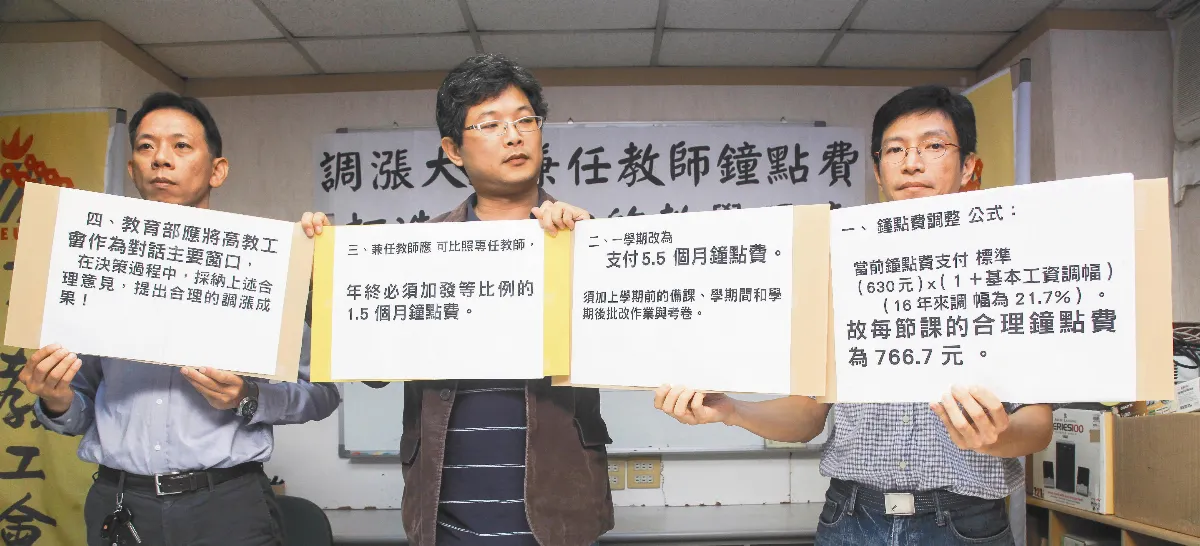 調漲大
兼任教師鐘點費
四、教育部應將高教工
會作為對話主要窗口，
在決策過程中，採納上述合
理意見，提出合理的調漲成
果！
三、兼任教師應 可比照專任教師，
年終必須加發等比例的
1.5 個月鐘點費。
二、一學期改為
支付5.5 個月鐘點費。
須加上學期前的備課、學期間和學
期後批改作業與考卷。
一、 鐘點費調整 公式：
當前鐘點費支付 標準
（630元）x（1＋基本工資調幅）
（16年來調 幅為 21.7%）。
故每節課的合理鐘點費
為 766.7 元 。
教工會
SERIES100